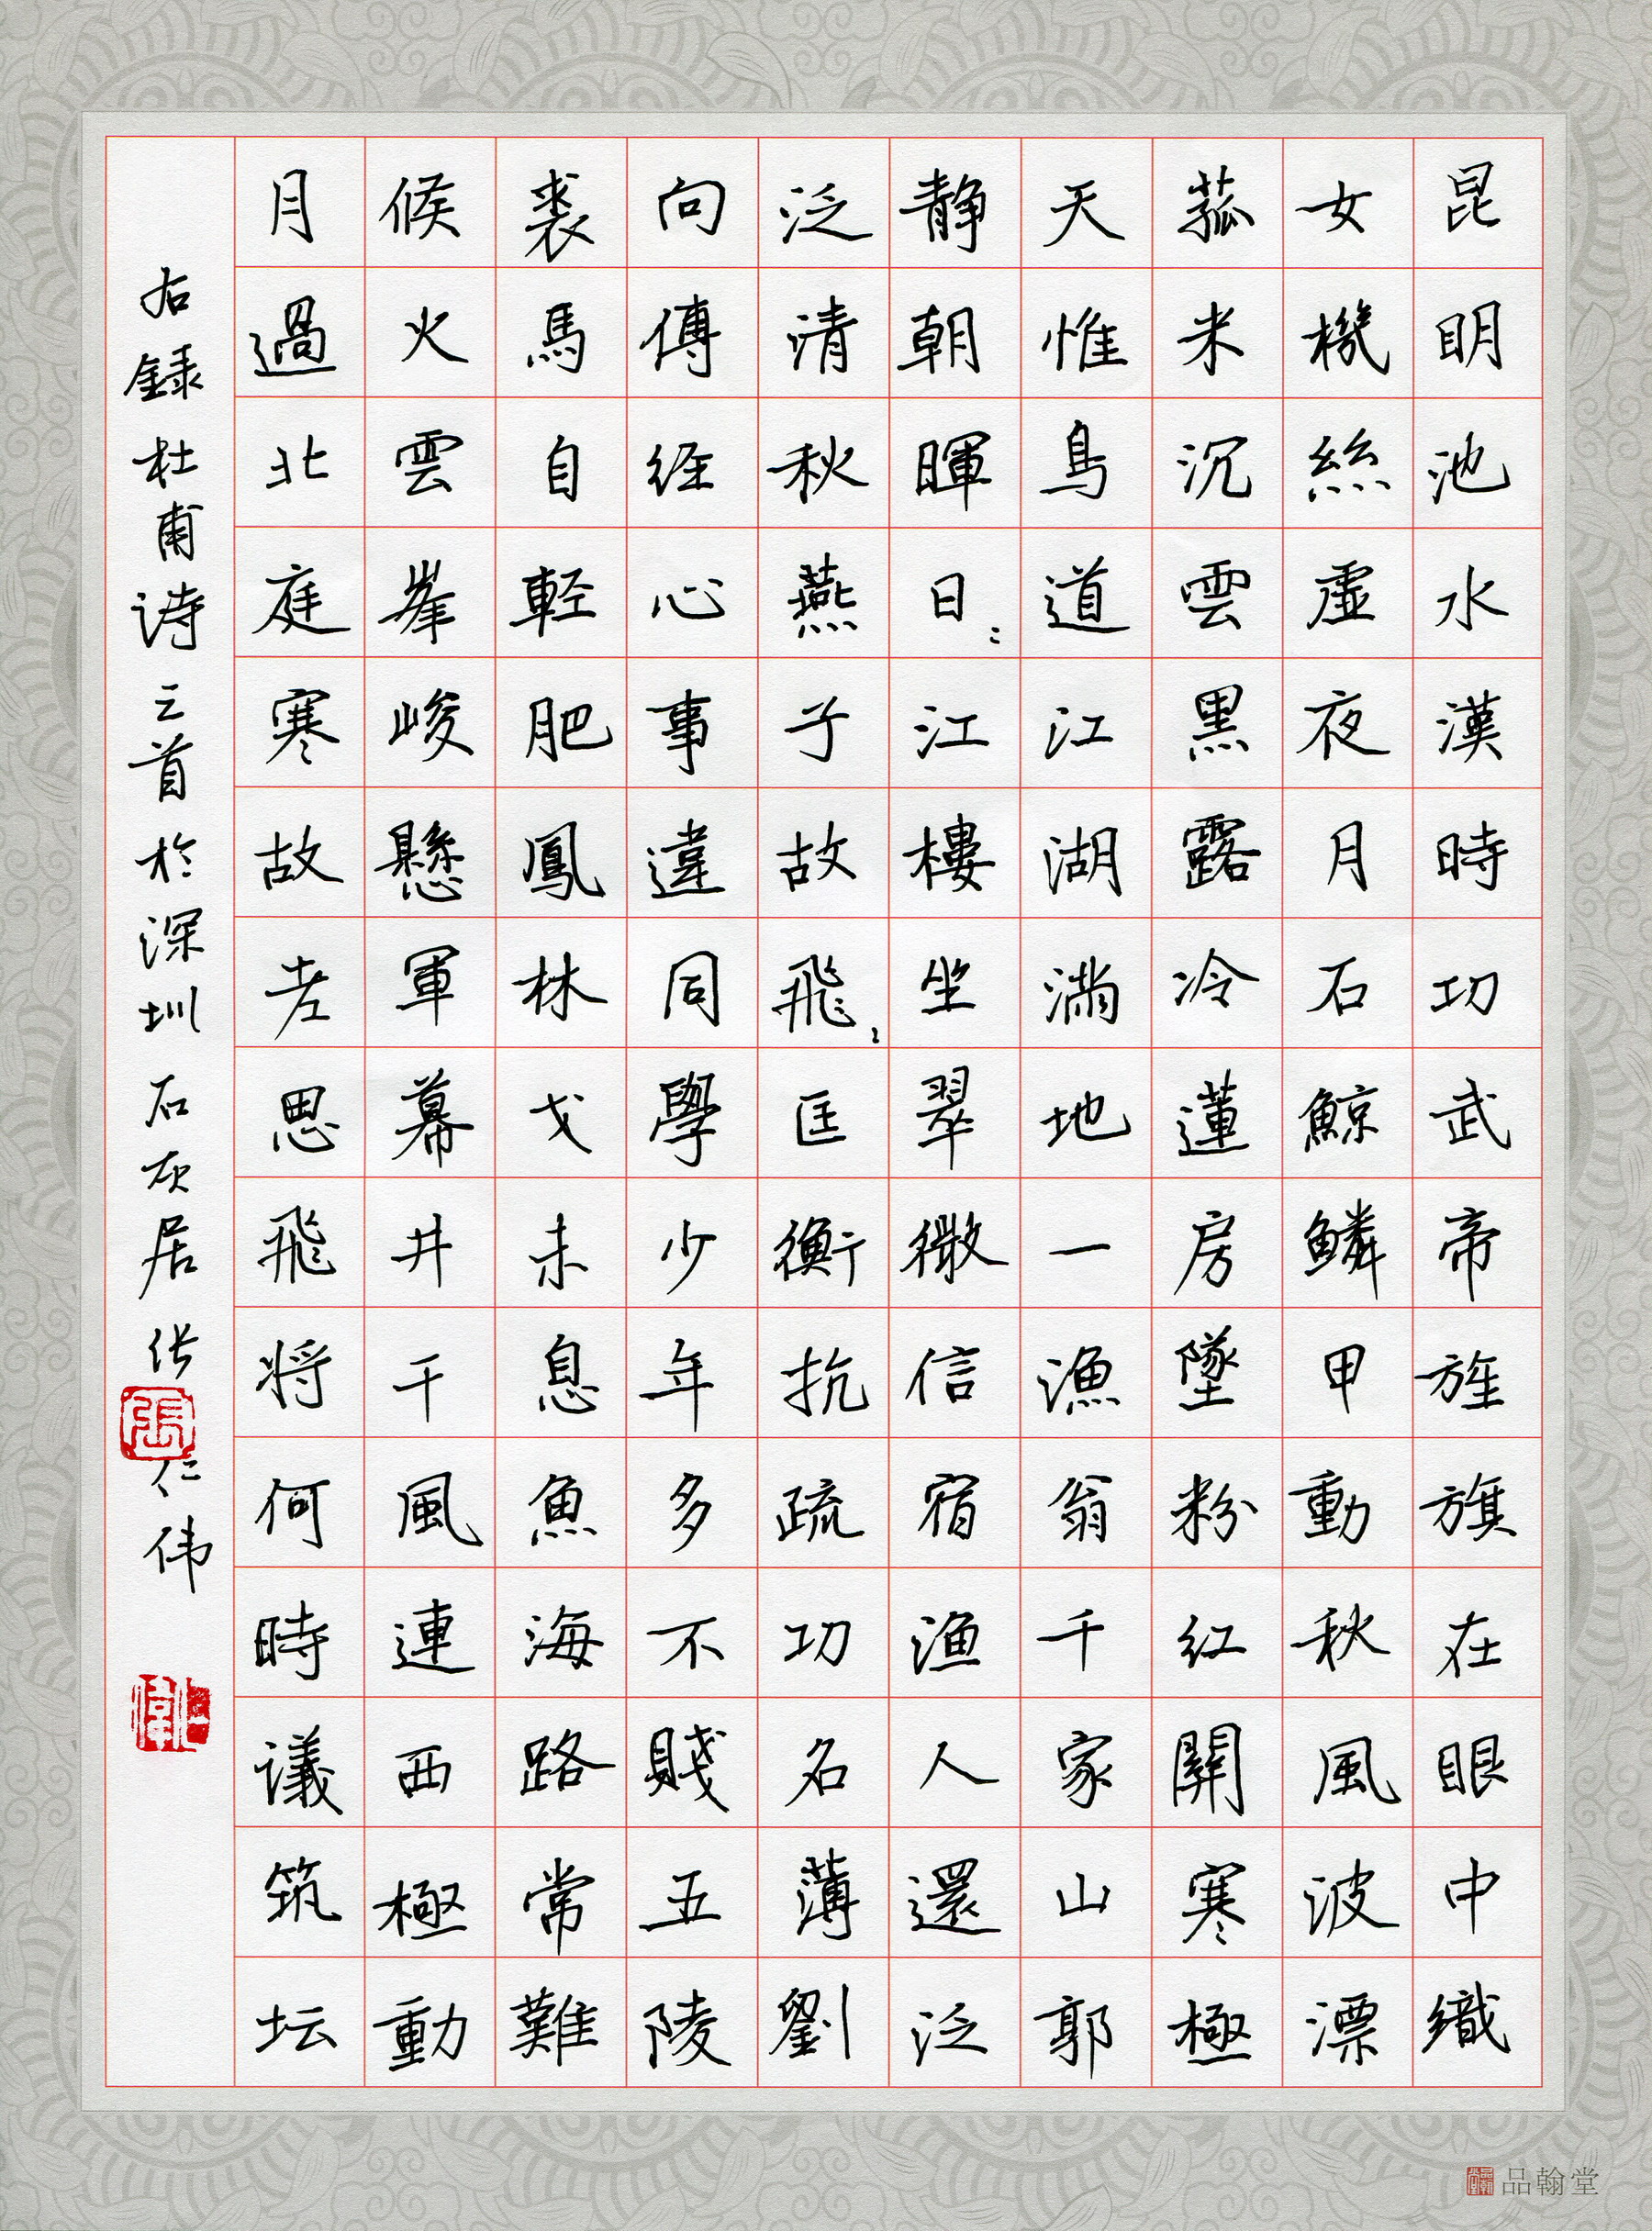 昆明池水漢時功武帝旌旗在眼中織
女機絲虛夜月石鯨鱗甲動秋風波漂
菰米沉雲黑露冷蓮房墜粉紅關寒極
天惟鳥道江湖滿地一漁翁千家山郭
静朝暉日〻江樓坐翠微信宿漁人還泛
泛清秋燕子故飛〻匡衡抗疏功名薄劉
向傳經心事違同學少年多不賤五陵
裘馬自輕肥鳳林戈未息魚海路常難
候火雲峯峻懸軍幕井干風連西極動
月過北庭寒故老思飛将何時议筑坛
右録杜甫诗三首於深圳石灰居张仁伟
張
仁偉
品翰堂